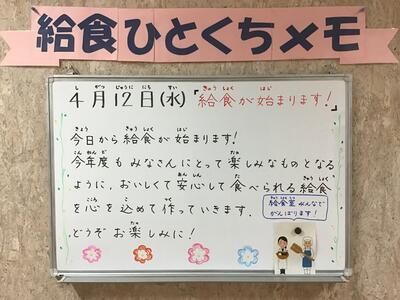 給食ひとくちメモ
4月12日(水)「給食が始まります!」
今日から給食が始まります!
今年度もみなさんにとって楽しみなものとなる
ように、おいしくて安心して食べられる給食
を心を込めて作っていきます。
どうぞお楽しみに!
給食室みんなで
がんばります!